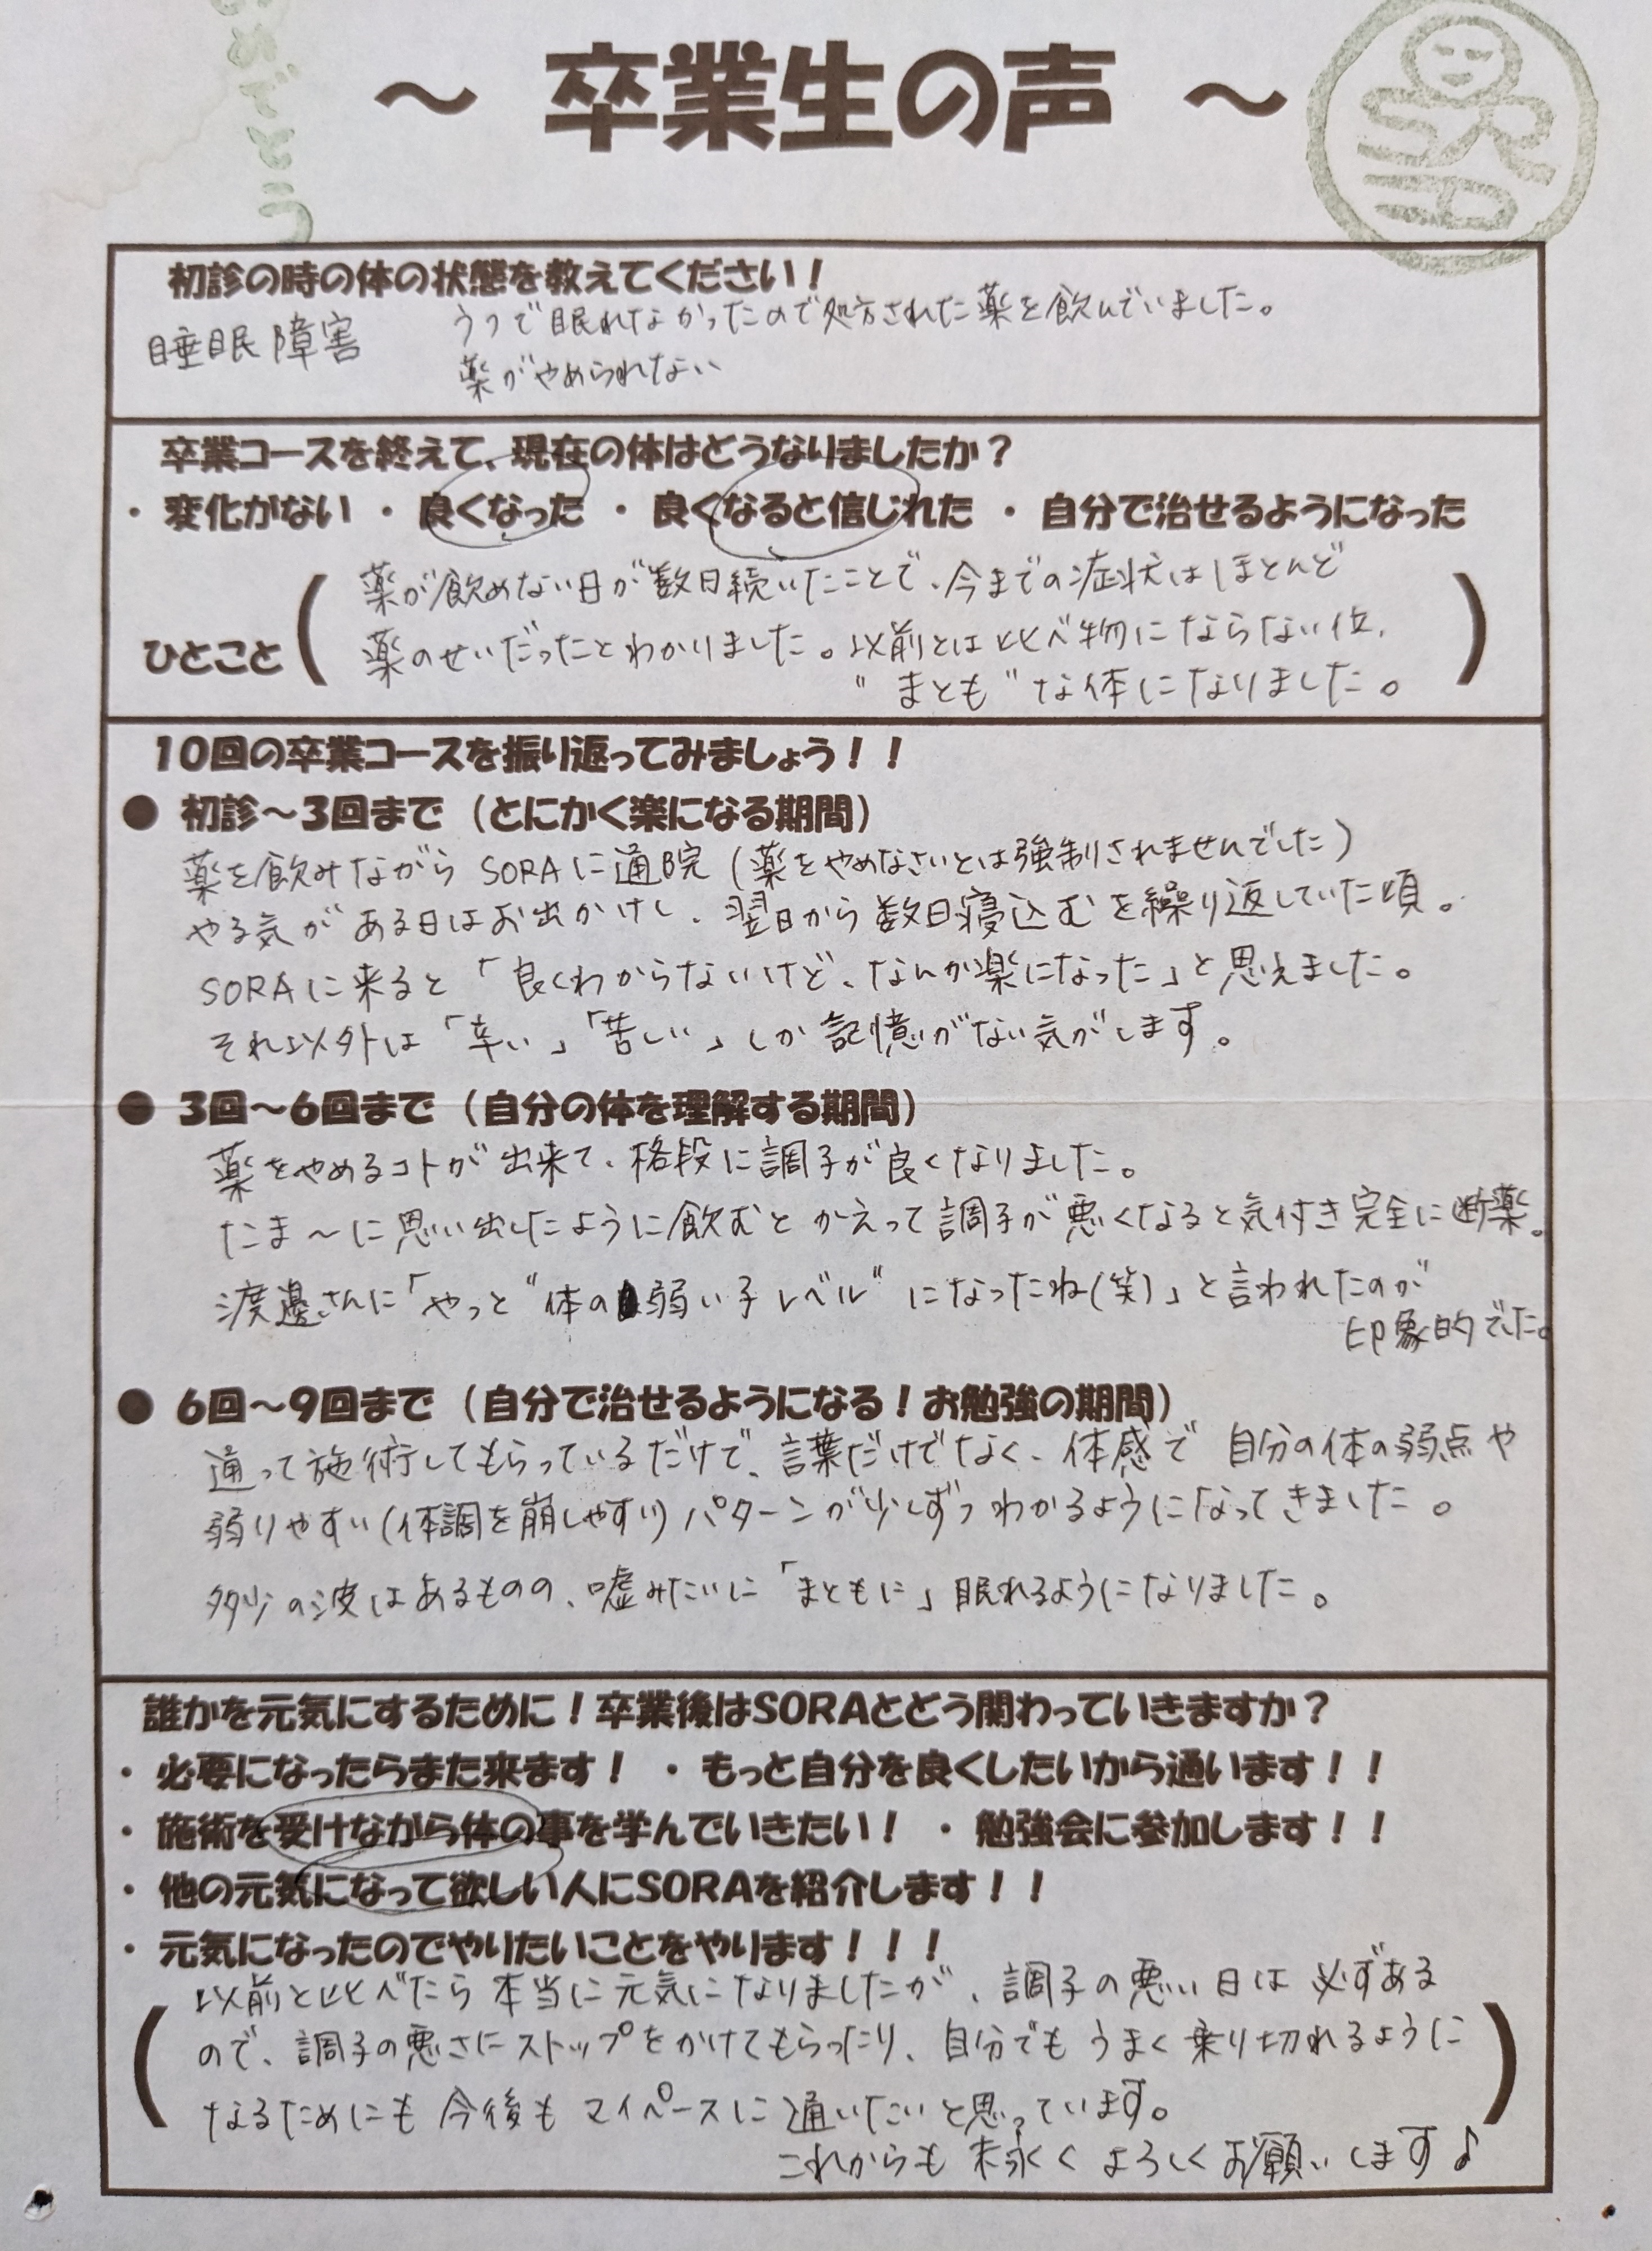 ～ 卒業生の声 ～
おめでとう
初診の時の体の状態を教えてください！
睡眠障害
うつで眠れなかったので処方された薬を飲んでいました。
薬がやめられない
卒業コースを終えて、現在の体はどうなりましたか？
・ 変化がない ・ 良くなった ・ 良くなると信じれた ・ 自分で治せるようになった
薬が飲めない日が数日続いたことで、今までの症状はほとんど
ひとこと
薬のせいだったとわかりました。以前とは比べ物にならない位、
"まとも"な体になりました。
10回の卒業コースを振り返ってみましょう！！
● 初診～3回まで（とにかく楽になる期間）
薬を飲みながらSORAに通院(薬をやめなさいとは強制されませんでした)
やる気がある日はお出かけし、翌日から数日寝込むを繰り返していた頃。
SORAに来ると「良くわからないけど、なんか楽になった」と思えました。
それ以外は「辛い」「苦しい」しか記憶がない気がします。
● 3回～6回まで（自分の体を理解する期間）
薬をやめるコトが出来て、格段に調子が良くなりました。
たま～に思い出したように飲むとかえって調子が悪くなると気付き完全に断薬。
渡邊さんに「やっと"体の弱い子レベル"になったね(笑)」と言われたのが
印象的でした。
● 6回～9回まで（自分で治せるようになる！お勉強の期間）
通って施術してもらっているだけで、言葉だけでなく、体感で自分の体の弱点や
弱りやすい(体調を崩しやすい)パターンが少しずつわかるようになってきました。
多少の波はあるものの、嘘みたいに「まともに」眠れるようになりました。
誰かを元気にするために！卒業後はSORAとどう関わっていきますか？
・ 必要になったらまた来ます！ ・ もっと自分を良くしたいから通います！！
・ 施術を受けながら体の事を学んでいきたい！ ・ 勉強会に参加します！！
・ 他の元気になって欲しい人にSORAを紹介します！！
・ 元気になったのでやりたいことをやります！！！
以前と比べたら本当に元気になりましたが、調子の悪い日は必ずある
ので、調子の悪さにストップをかけてもらったり、自分でもうまく乗り切れるように
なるためにも今後もマイペースに通いたいと思っています。
これからも末永くよろしくお願いします♪